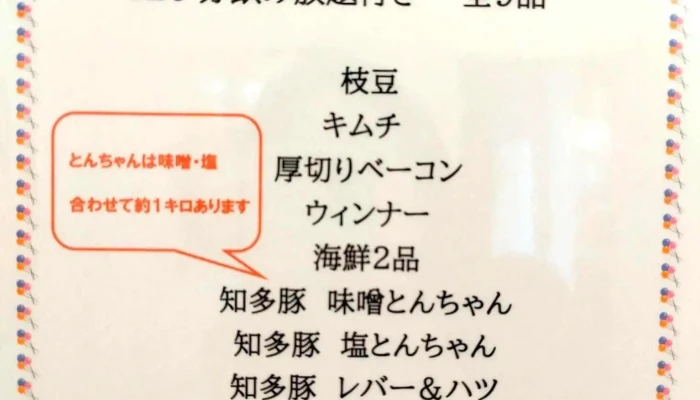 飲み放題付き 全9品
枝豆
キムチ
厚切りベーコン
ウィンナー
海鮮2品
とんちゃんは味噌・塩
合わせて約1キロあります
知多豚 味噌とんちゃん
知多豚 塩とんちゃん
知多豚 レバー＆ハツ